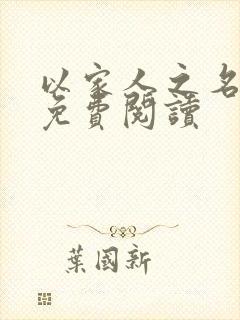 以家人之名
免費閱讀
葉國新